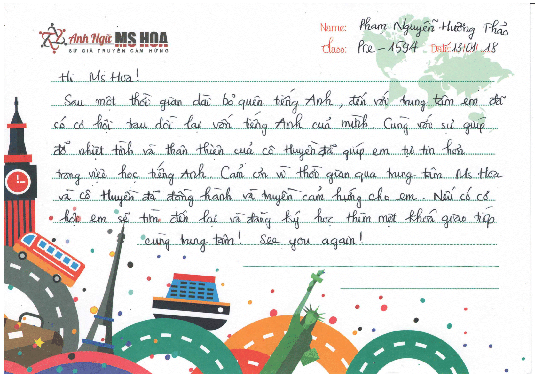 Anh Ngữ MS HOA
SỨ GIẢ TRUYỀN CẢM HỨNG
Name: Phạm Nguyễn Hương Thảo
Class: Pre-1594 Date: 13.01.18
Hi Ms Hoa!
Sau một thời gian dài bỏ quên tiếng Anh, đến với trung tâm em đã
có cơ hội trau dồi lại vốn tiếng Anh của mình. Cùng với sự giúp
đỡ nhiệt tình và thân thiện của cô Huyền đã giúp em tự tin hơn
trong việc học tiếng Anh. Cảm ơn vì thời gian qua trung tâm Ms Hoa
và cô Huyền đã đồng hành và truyền cảm hứng cho em. Nếu có cơ
hội em sẽ tìm đến lại và đăng ký học thêm một khóa giao tiếp
cùng trung tâm! See you again!